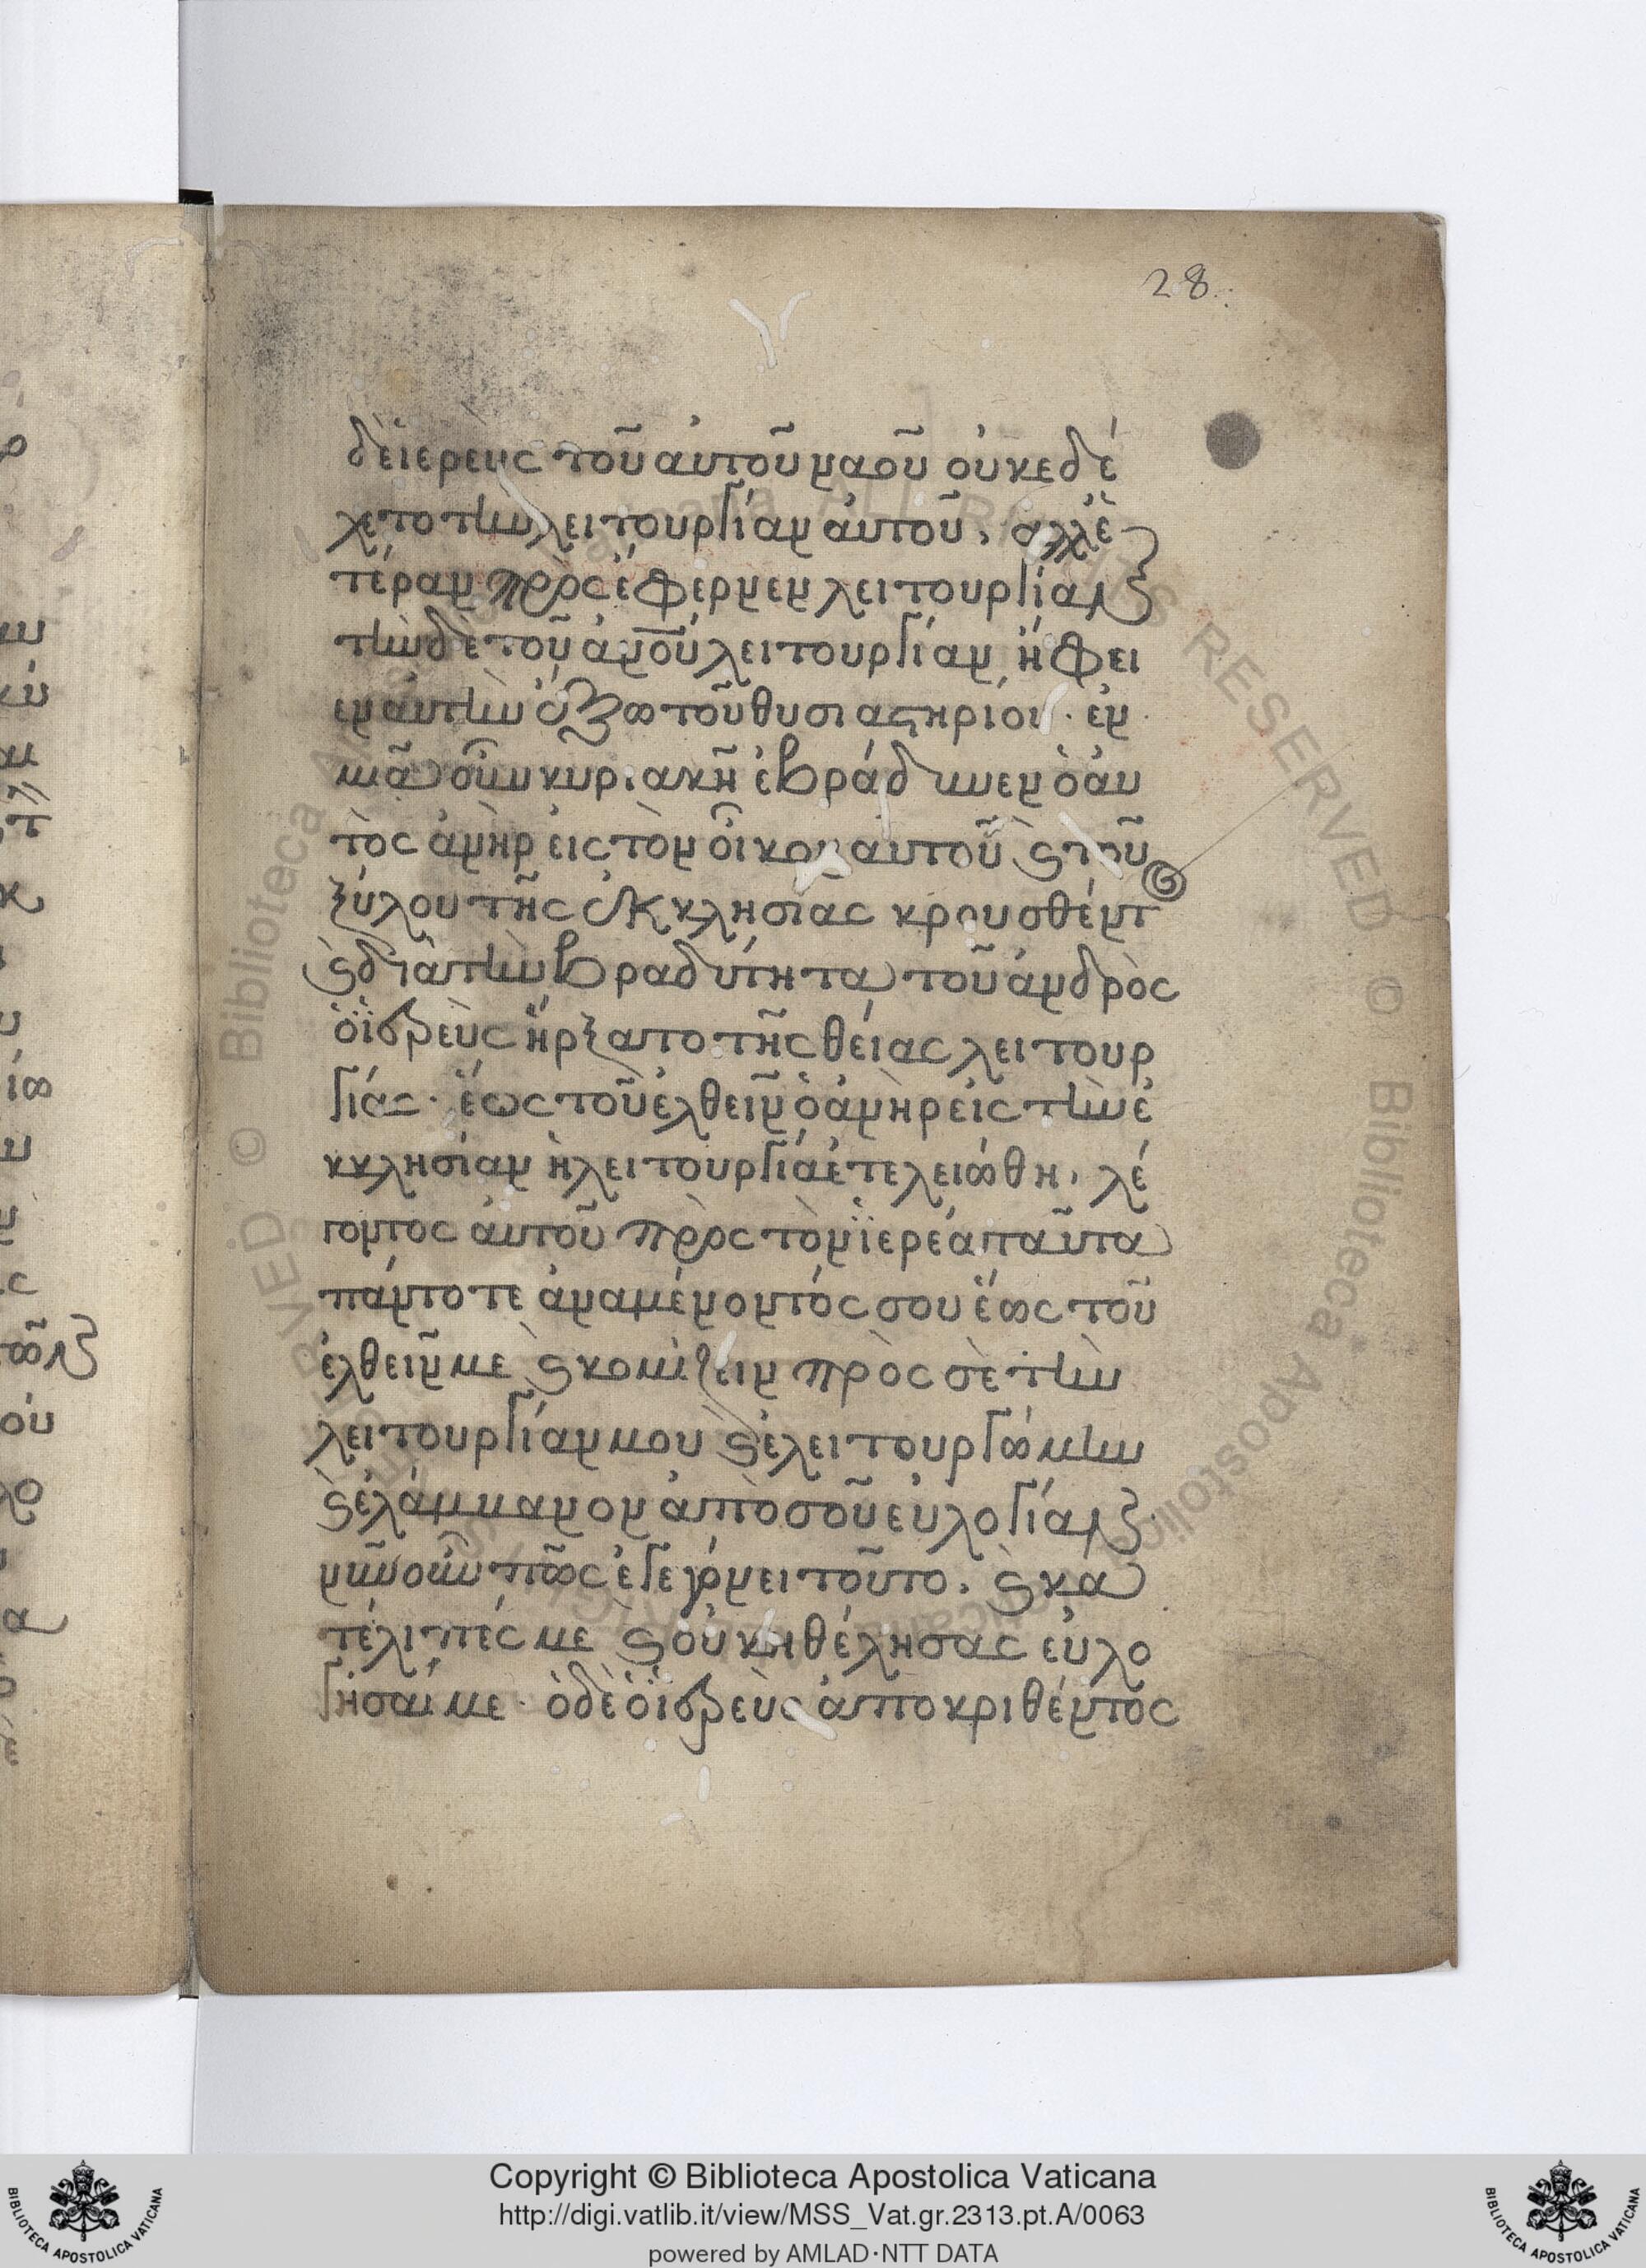 28
δὲ ἱερεὺς τοῦ αὐτοῦ ναοῦ οὐκ ἐδέ
χετο τὴν λειτουργίαν αὐτοῦ, ἀλλ' ἑ
τέραν πρὸς ἔφερνεν λειτουργίαν
τὴν δὲ τοῦ ἀνοῦ λειτουργίαν ἤφει
εν αὐτὴν ἔξω τοῦ θυσιαστηρίου · ἐν
μιᾷ οὖν κυριακῇ ἐβράδυνεν ὁ αὐ
τὸς ἀνὴρ εἰς τὸν οἶκον αὐτοῦ ϗ τοῦ
ξύλου τῆς ἐκκλησίας κρουσθέντ
ϗ διὰ τὴν βραδυτῆτα τοῦ ἀνδρὸς
ὁ ἱερεὺς ἤρξατο τῆς θείας λειτουρ
γίας · ἕως τοῦ ἐλθεῖν ὁ ἀνὴρ εἰς τὴν ἐ
κκλησίαν ἡ λειτουργία ἐτελειώθη, λέ
γοντος αὐτοῦ πρὸς τὸν ἱερέα παῦτα
πάντοτε ἀναμένοντός σου ἕως τοῦ
ἐλθεῖν με ϗ κομίζειν πρὸς σὲ τὴν
λειτουργίαν μου ϗ ἐλειτουργώμην
ϗ ἐλάμμανον ἀπὸ σοῦ εὐλογίαν
νῦν οὖν πῶς ἐγεγόνει τοῦτο, ϗ κα
τέλιπές με ϗ οὐκ ἠθέλησας εὐλο
γῆσαί με · ὁ δὲ ὁ ἱερεὺς ἀποκριθέντος
Copyright © Biblioteca Apostolica Vaticana
http://digi.vatlib.it/view/MSS_Vat.gr.2313.pt.A/0063
powered by AMLAD·NTT DATA
BIBLIOTECA APOSTOLICA VATICANA
BIBLIOTECA APOSTOLICA VATICANA